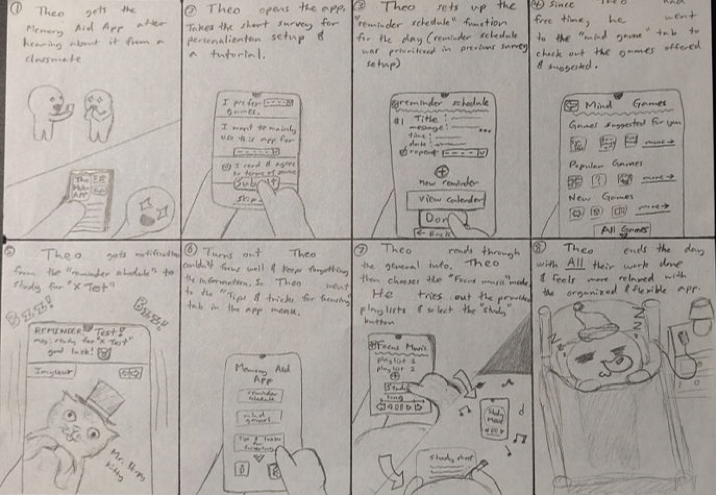 ① Theo gets the
Memory Aid App after
hearing about it from a
classmate
The
App
② Theo opens the app.
Takes the short survey for
setup &
a tutorial.
I prefer
games.
I want to mainly
use this app for
I read & agree
to terms of
skip
③ Theo sets up the
"reminder schedule" function
for the day (reminder schedule
was prioritized in previous survey
setup)
reminder schedule
#1 Title:
message:
time:
date:
repeat:
New reminder
View calendar
Done
Back
④ Since Theo had
free time, he went
to the "mind game" tab to
check out the games offered
& suggested.
Mind Games
Games suggested for you
more →
Popular Games
?
more →
New Games
more →
All Games
⑤ Theo gets notification
from the "reminder schedule" to
study for "X Test"
Bzzz!
Bzzz!!
REMINDER Test!
msg: ready for "X Test"
good luck!
Mr.
Kitty
⑥ Turns out Theo
couldn't focus well & keep forgetting
the information. So Theo went
to the "Tips & tricks for focusing"
tab in the app menu.
Memory Aid
App
reminder
schedule
mind
games
Tips & tricks
for
focusing
⑦ Theo reads through
the general info. Theo
then chooses the "Focus music" mode.
He tries out the provided
playlists & select the "study"
button
Focus Music
playlist 1
playlist 2
Study
Study
Mood
⑧ Theo ends the day
with All their work done
& feels more relaxed with
the organized & flexible app.
z z z
z z